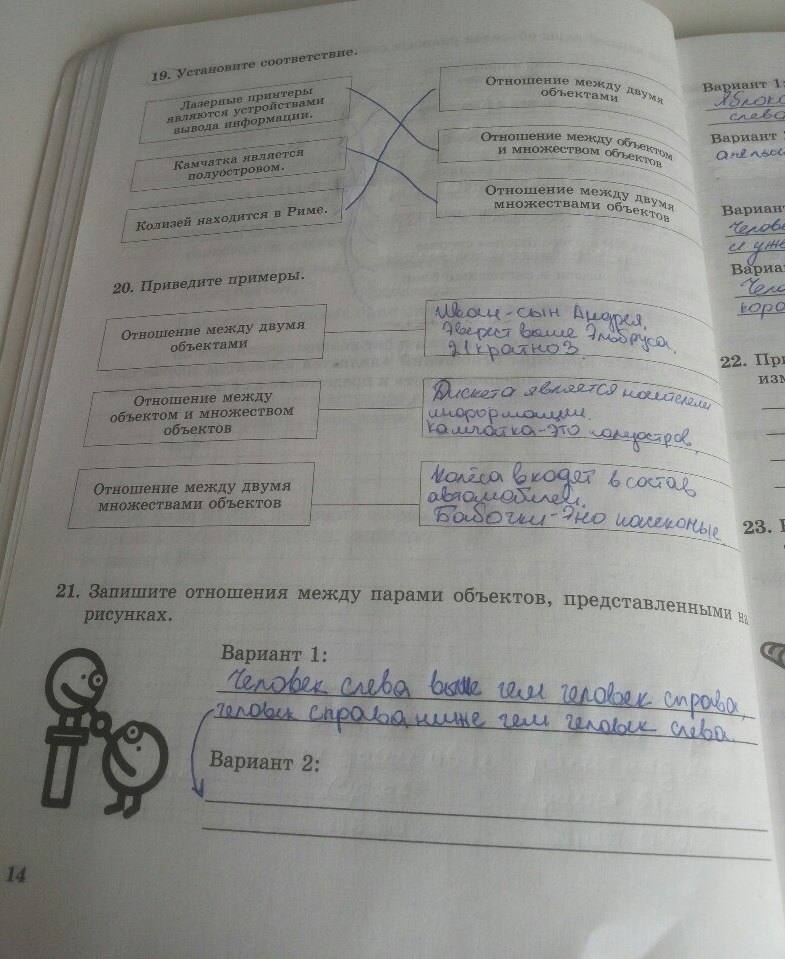 19. Установите соответствие.
Лазерные принтеры
являются устройствами
вывода информации.
Камчатка является
полуостровом.
Колизей находится в Риме.
Отношение между двумя
объектами
Отношение между объектом
и множеством объектов
Отношение между двумя
множествами объектов
20. Приведите примеры.
Отношение между двумя
объектами
Иван-сын Андрея.
Эверест выше Эльбруса.
21 кратно 3
Отношение между
объектом и множеством
объектов
Дискета является носителем
информации.
Камчатка-это полуостров
Отношение между двумя
множествами объектов
Колёса входят в состав
автомобилей.
Бабочки-это насекомые
21. Запишите отношения между парами объектов, представленными на
рисунках.
Вариант 1:
Человек слева выше чем человек справа,
человек справа ниже чем человек слева.
Вариант 2:
14
Вариант 1:
слева
Вариант
22.
23.